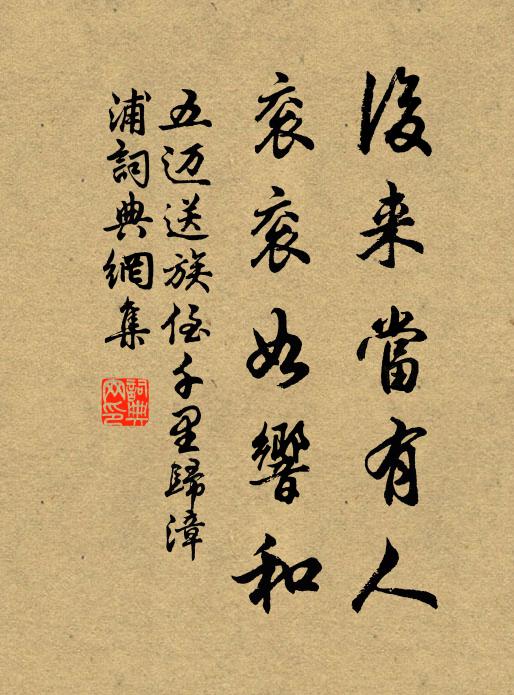 後来當有人
衮衮如響和
五迈送族侄千里歸漳
浦詞典網集
詞典網印